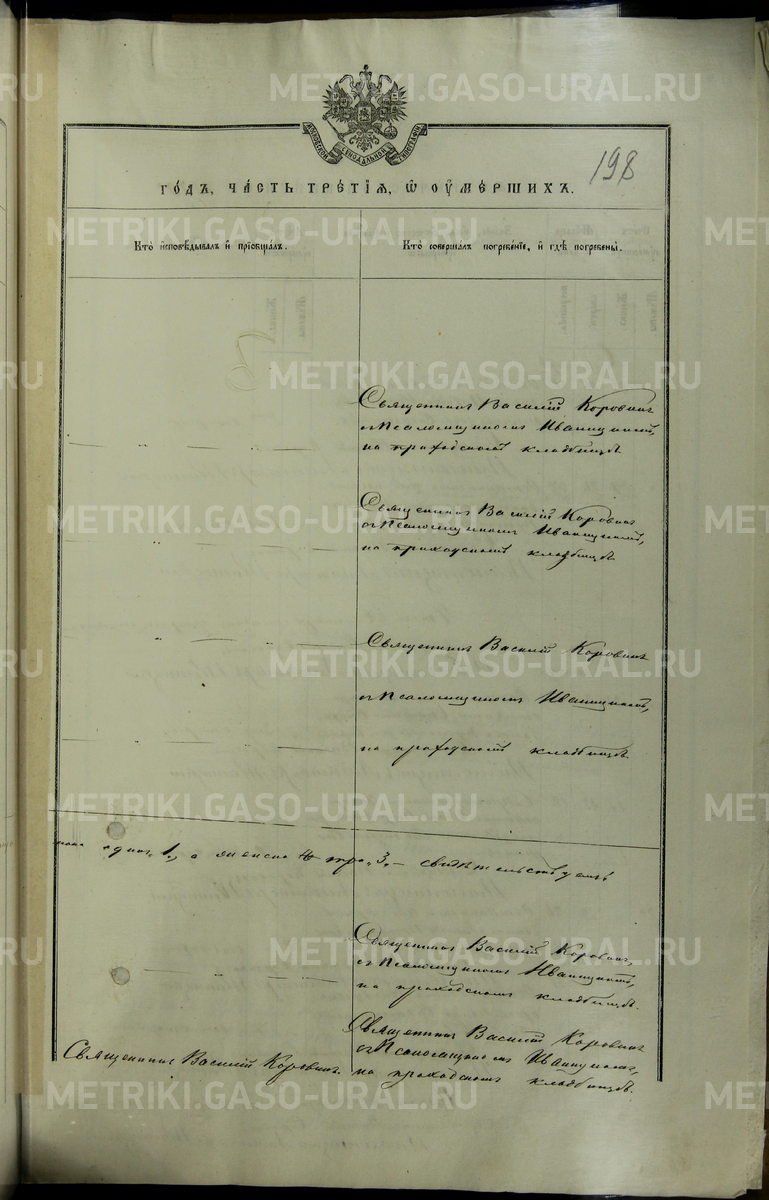 198
МОСКОВСКОЙ СѴНОДАЛЬНОЙ ТИПОГРАФІИ
ГО́ДЪ, ЧА́СТЬ ТРЕ́ТІѦ, Ѿ ОУ҆МЕ́РШИХЪ.
Кто̀ и҆сповѣ́дывалъ и҆ прїѡбща́лъ.
Кто̀ соверша́лъ погребе́нїе, и҆ гдѣ̀ погребены̀.
Священникъ Василій Коровинъ
съ Псаломщикомъ Иваницкимъ,
на приходскомъ кладбищѣ
Священникъ Василій Коровинъ
съ Псаломщикомъ Иваницкимъ,
на приходскомъ кладбищѣ
Священникъ Василій Коровинъ
съ Псаломщикомъ Иваницкимъ,
на приходскомъ кладбищѣ
одинъ 1, а женска 3. – свидѣтельствуемъ
Священникъ Василій Коровинъ,
съ Псаломщикомъ Иваницкимъ,
на приходскомъ кладбищѣ.
Священникъ Василій Коровинъ.
Священникъ Василій Коровинъ
съ Псаломщикомъ Иваницкимъ,
на приходскомъ кладбищѣ.
METRIKI.GASO-URAL.RU